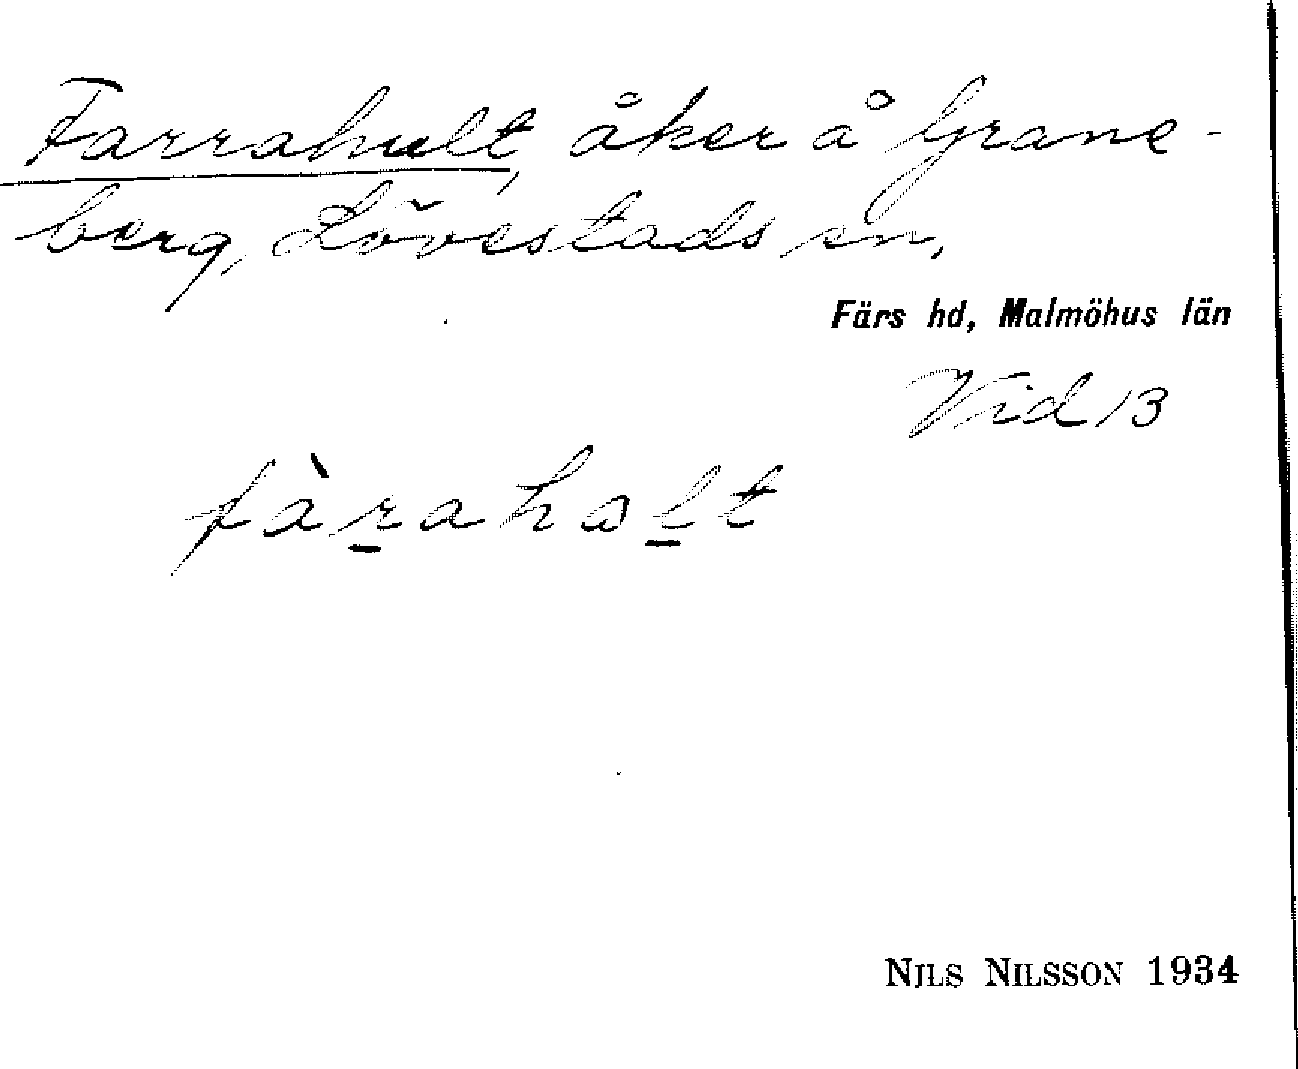 Farrahult, åker å Grane-
berg, Lövestads sn,
Färs hd, Malmöhus län
Vid 13
fàṟahaḻt
NILS NILSSON 1934